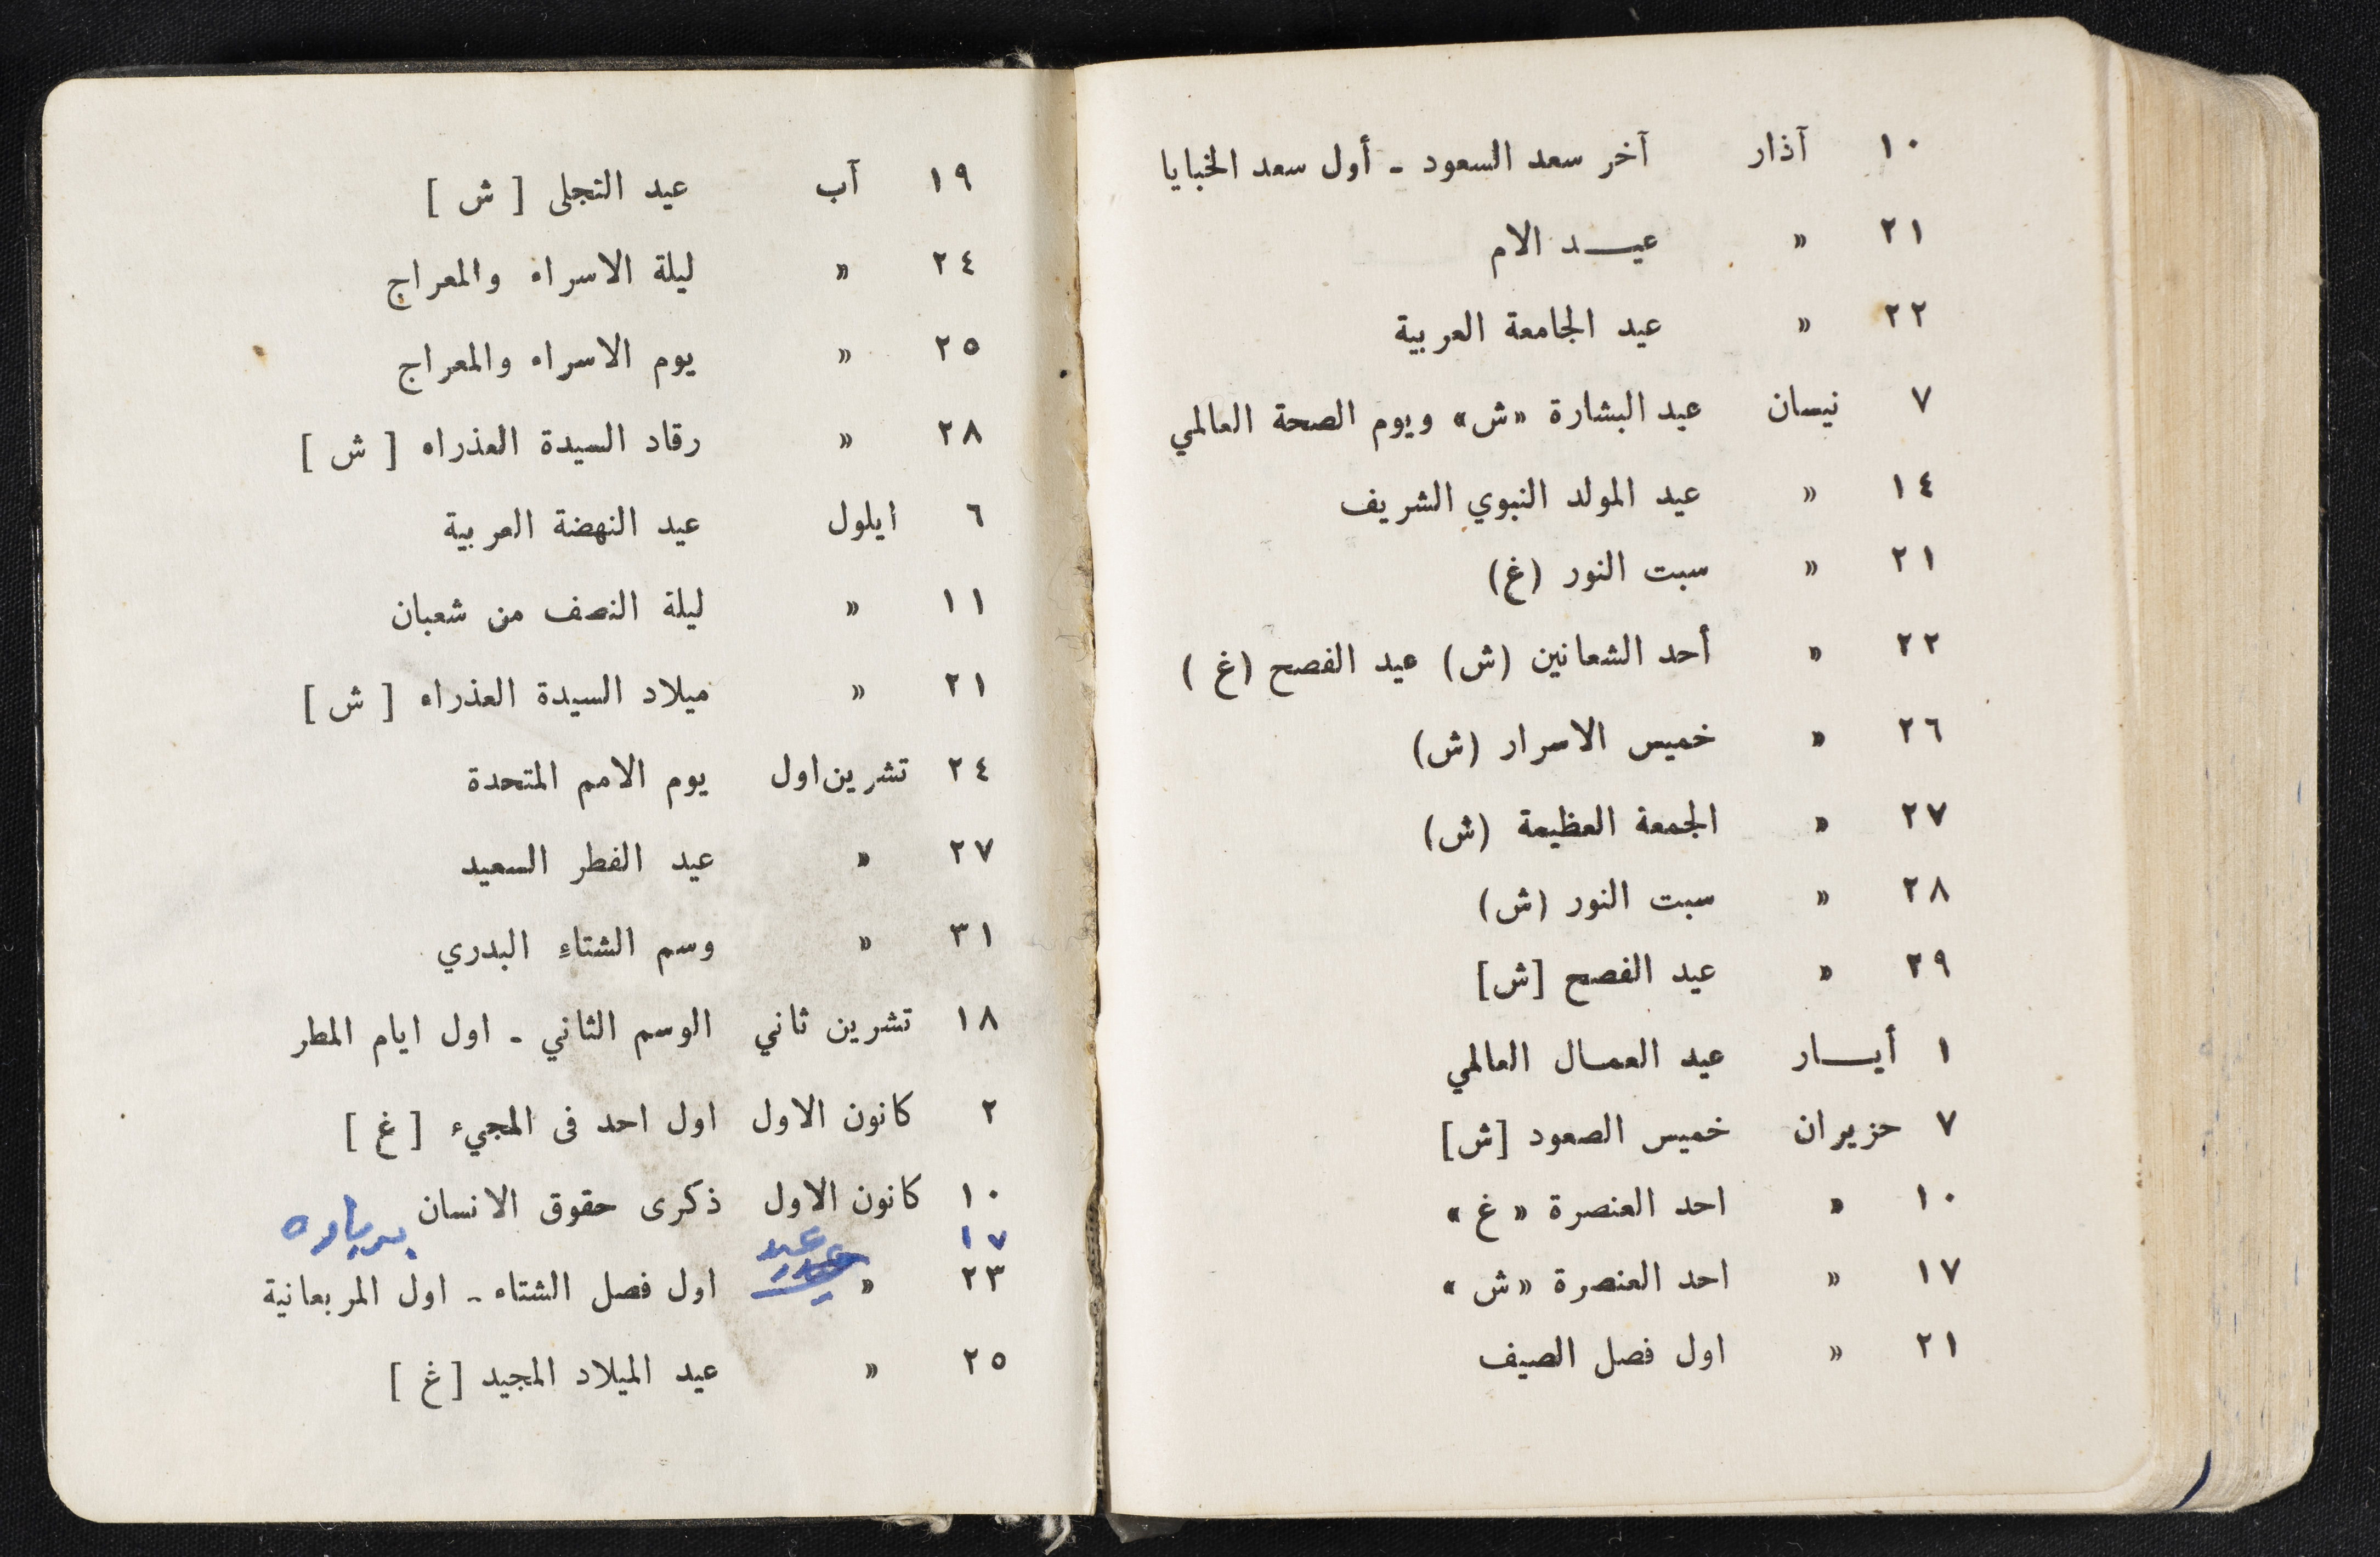 ١٠ آذار آخر سعد السعود - أول سعد الخبايا
٢١ » عيـــد الام
٢٢ » عيد الجامعة العربية
٧ نيسان عيد البشارة «ش» ويوم الصحة العالمي
١٤ » عيد المولد النبوي الشريف
٢١ » سبت النور (غ)
٢٢ » أحد الشعانين (ش) عيد الفصح (غ)
٢٦ » خميس الاسرار (ش)
٢٧ » الجمعة العظيمة (ش)
٢٨ » سبت النور (ش)
٢٩ » عيد الفصح [ش]
١ أيـــار عيد العمـال العالمي
٧ حزيران خميس الصعود [ش]
١٠ » احد العنصرة «غ»
١٧ » احد العنصرة «ش»
٢١ » اول فصل الصيف
١٩ آب عيد التجلى [ش]
٢٤ » ليلة الاسراء والمعراج
٢٥ » يوم الاسراء والمعراج
٢٨ » رقاد السيدة العذراء [ش]
٦ ايلول عيد النهضة العربية
١١ » ليلة النصف من شعبان
٢١ » ميلاد السيدة العذراء [ش]
٢٤ تشرين اول يوم الامم المتحدة
٢٧ » عيد الفطر السعيد
٣١ » وسم الشتاء البدري
١٨ تشرين ثاني الوسم الثاني - اول ايام المطر
٢ كانون الاول اول احد فى المجيء [غ]
١٠ كانون الاول ذكرى حقوق الانسان
١٧ عيد بربارة
٢٣ » اول فصل الشتاء - اول المربعانية
٢٥ » عيد الميلاد المجيد [غ]